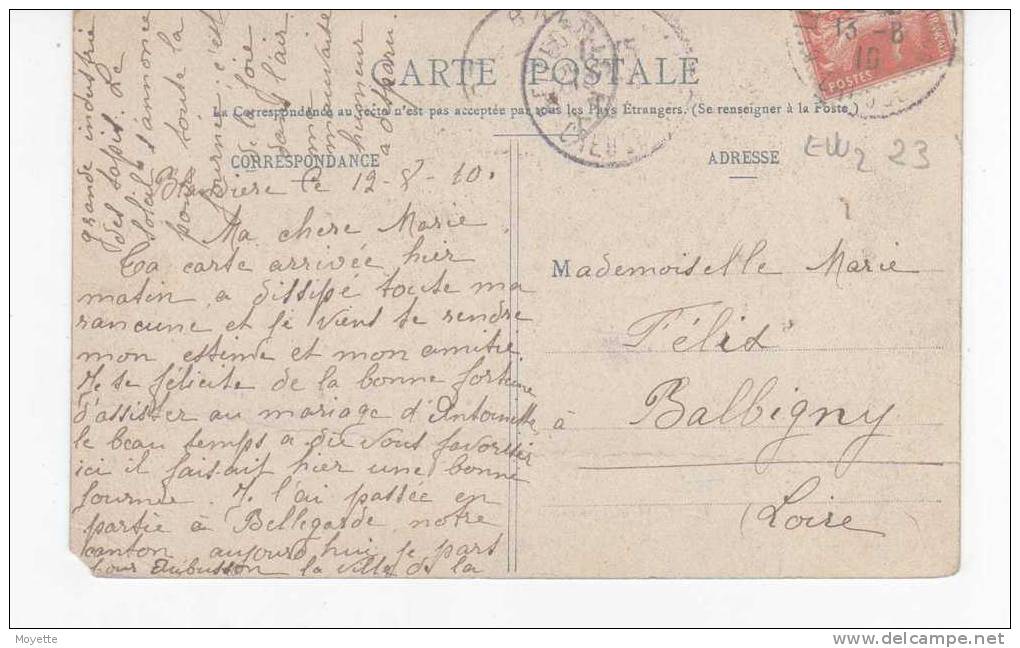 13 - 8
10
POSTES
CREUSE
CARTE POSTALE
La Correspondance au recto n'est pas acceptée par tous les Pays Étrangers. (Se renseigner à la Poste.)
CORRESPONDANCE
ADRESSE
EW2 23
le 12-8-10.
Ma chere Marie
Ta carte arrivée hier
matin a dissipé toute ma
rancune et je viens te rendre
mon estime et mon amitié.
Je te félicite de la bonne fortune
d'assister au mariage d'Antoinette
le beau temps a dû vous favoriser
ici il faisait hier une bonne
journée. Je l'ai passée en
partie à Bellegarde notre
canton aujourd'hui je part
pour Aubusson la ville de la
grande industrie
des tapis. Le
soleil s'annonce
pour toute la
journée c'est
de la joie
dans l'air
ma mauvaise
humeur
a disparu
Mademoiselle Marie
Félix
à Balbigny
Loire
Moyette
www.delcampe.net